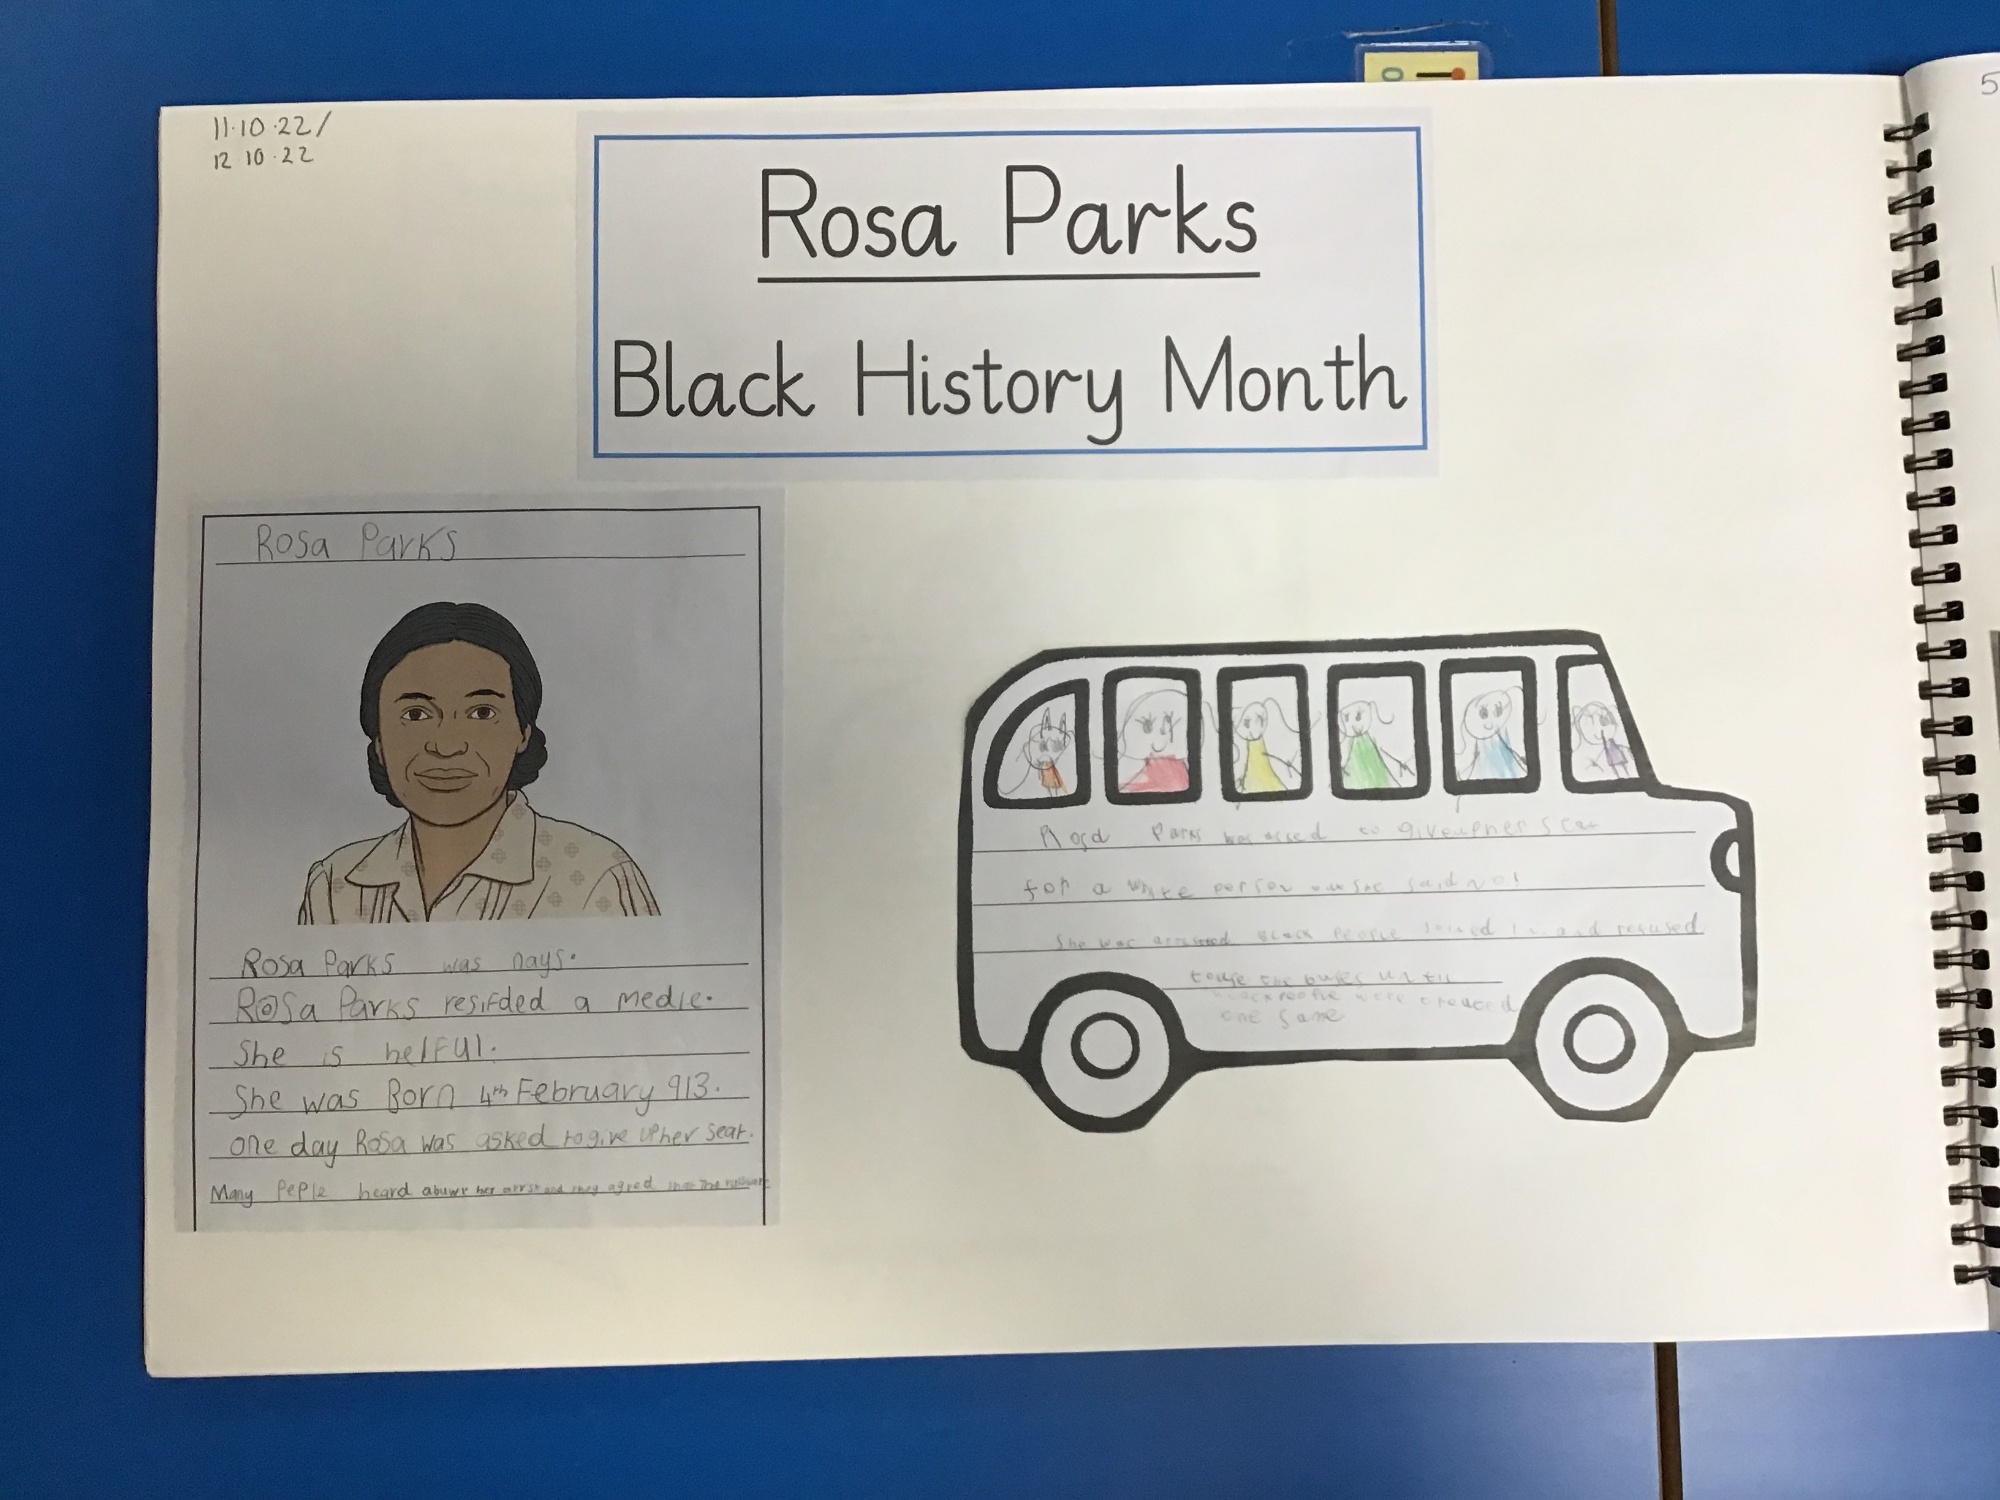 11.10.22/
12.10.22
5
Rosa Parks
Black History Month
Rosa Parks
Rosa Parks was nays.
Rosa Parks resifded a medle.
She is helful.
She was Born 4th February 913.
one day Rosa was asked to give up her seat.
Many Peple heard abuwt her arrst and they agred that The
Parks was asced to give up her seat
for a white person said no!
She was arrested Black People Joined in and refused
to use the buses until
People were treated
the same